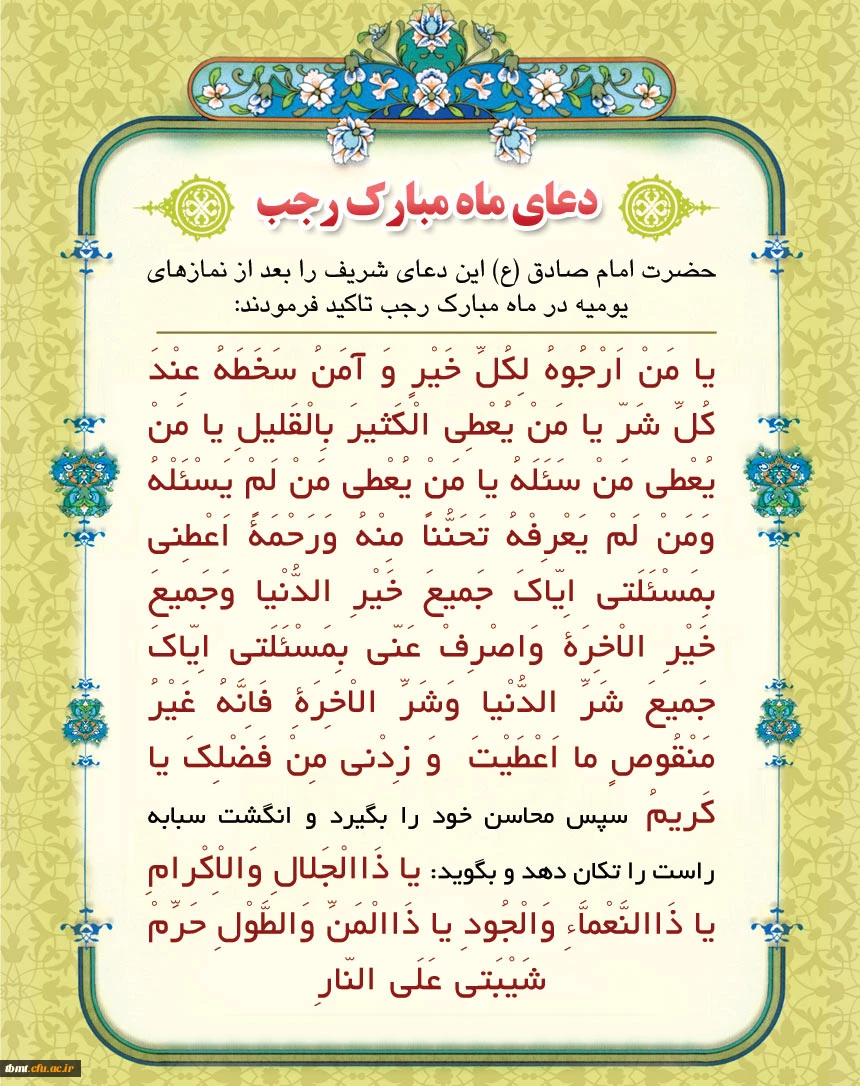 دعای ماه مبارک رجب
حضرت امام صادق (ع) این دعای شریف را بعد از نمازهای
یومیه در ماه مبارک رجب تاکید فرمودند:
یا مَنْ اَرْجُوهُ لِکُلِّ خَیْرٍ وَ آمَنُ سَخَطَهُ عِنْدَ
کُلِّ شَرّ یا مَنْ یُعْطِی الْکَثیرَ بِالْقَلیلِ یا مَنْ
یُعْطی مَنْ سَئَلَهُ یا مَنْ یُعْطی مَنْ لَمْ یَسْئَلْهُ
وَمَنْ لَمْ یَعْرِفْهُ تَحَنُّناً مِنْهُ وَرَحْمَهًً اَعْطِنی
بِمَسْئَلَتی اِیّاکَ جَمیعَ خَیْرِ الدُّنْیا وَجَمیعَ
خَیْرِ الاْخِرَهِٔ وَاصْرِفْ عَنّی بِمَسْئَلَتی اِیّاکَ
جَمیعَ شَرِّ الدُّنْیا وَشَرِّ الاْخِرَهِٔ فَاِنَّهُ غَیْرُ
مَنْقُوصٍ ما اَعْطَیْتَ وَ زِدْنی مِنْ فَضْلِکَ یا
کَریمُ سپس محاسن خود را بگیرد و انگشت سبابه
راست را تکان دهد و بگوید: یا ذَاالْجَلالِ وَالاِْکْرامِ
یا ذَاالنَّعْماَّءِ وَالْجُودِ یا ذَاالْمَنِّ وَالطَّوْلِ حَرِّمْ
شَیْبَتی عَلَی النّارِ
tbmt.cfu.ac.ir